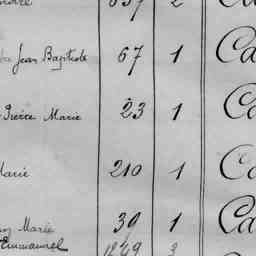 Jean Baptiste 67 1 Ca
Pierre Marie 23 1 Ca
Marie 210 1 Ca
Marie 39 1 Ca
Emmanuel 1249 3